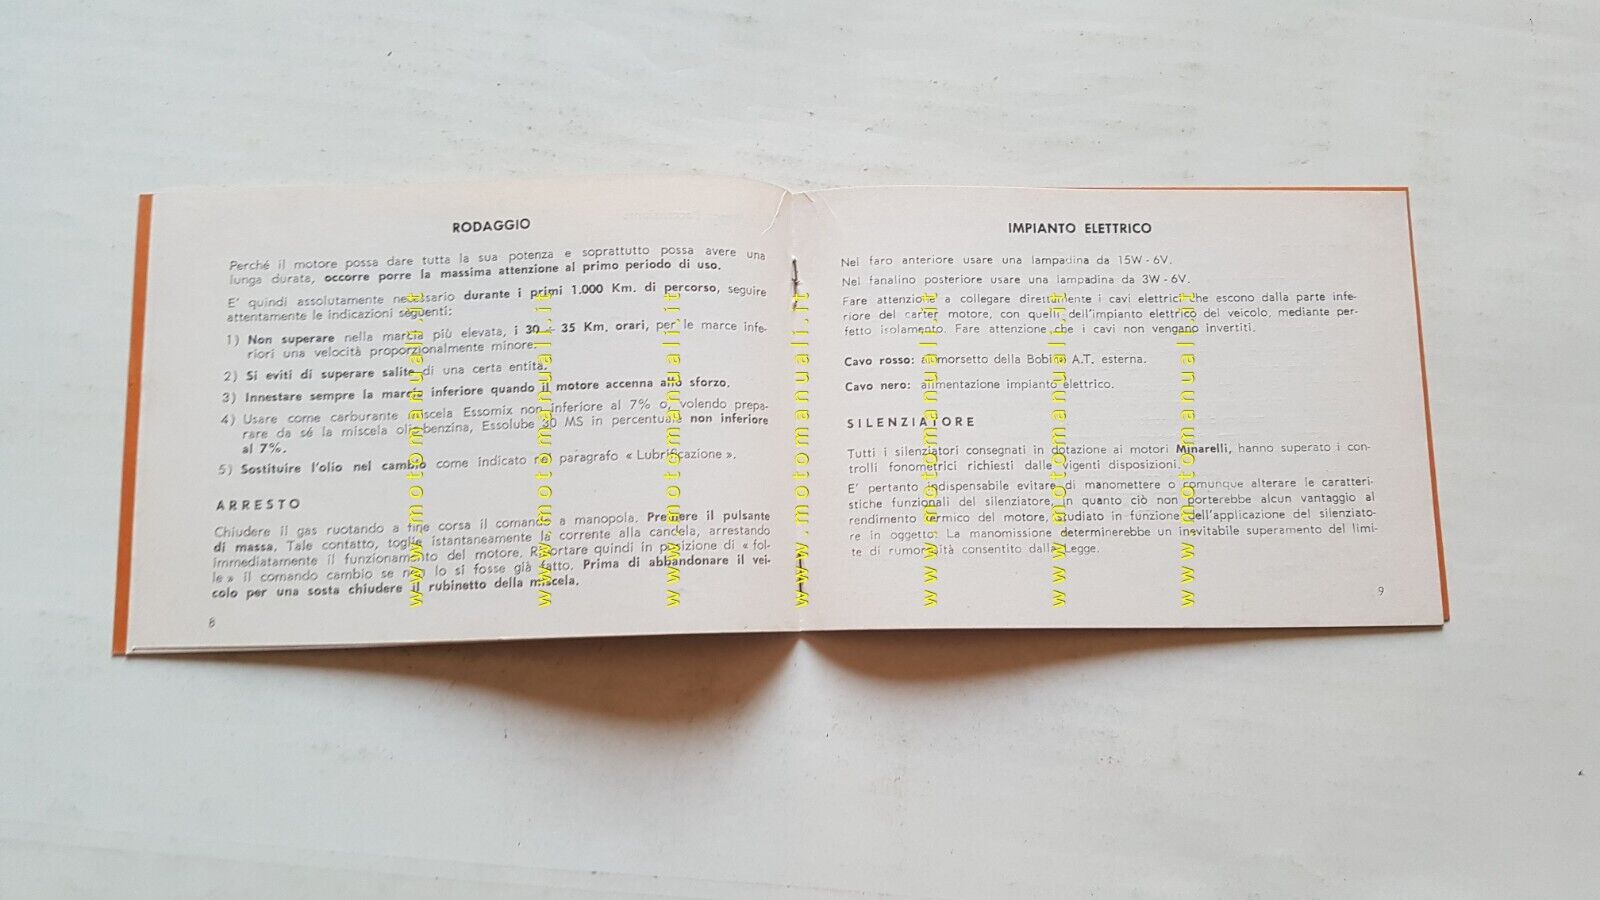 RODAGGIO
Perché il motore possa dare tutta la sua potenza e soprattutto possa avere una
lunga durata, occorre porre la massima attenzione al primo periodo di uso.
E' quindi assolutamente necessario durante i primi 1.000 Km. di percorso, seguire
attentamente le indicazioni seguenti:
1) Non superare nella marcia più elevata, i 30 ÷ 35 Km. orari, per le marce infe-
riori una velocità proporzionalmente minore.
2) Si eviti di superare salite di una certa entità.
3) Innestare sempre la marcia inferiore quando il motore accenna allo sforzo.
4) Usare come carburante miscela Essomix non inferiore al 7% o, volendo prepa-
rare da sé la miscela olio-benzina, Essolube 30 MS in percentuale non inferiore
al 7%.
5) Sostituire l'olio nel cambio come indicato nel paragrafo « Lubrificazione ».
ARRESTO
Chiudere il gas ruotando a fine corsa il comando a manopola. Premere il pulsante
di massa. Tale contatto, toglie istantaneamente la corrente alla candela, arrestando
immediatamente il funzionamento del motore. Riportare quindi in posizione di « fol-
le » il comando cambio se non lo si fosse già fatto. Prima di abbandonare il vei-
colo per una sosta chiudere il rubinetto della miscela.
8
IMPIANTO ELETTRICO
Nel faro anteriore usare una lampadina da 15W - 6V.
Nel fanalino posteriore usare una lampadina da 3W - 6V.
Fare attenzione a collegare direttamente i cavi elettrici che escono dalla parte infe-
riore del carter motore, con quelli dell'impianto elettrico del veicolo, mediante per-
fetto isolamento. Fare attenzione che i cavi non vengano invertiti.
Cavo rosso: al morsetto della Bobina A.T. esterna.
Cavo nero: alimentazione impianto elettrico.
SILENZIATORE
Tutti i silenziatori consegnati in dotazione ai motori Minarelli, hanno superato i con-
trolli fonometrici richiesti dalle vigenti disposizioni.
E' pertanto indispensabile evitare di manomettere o comunque alterare le caratteri-
stiche funzionali del silenziatore in quanto ciò non porterebbe alcun vantaggio al
rendimento termico del motore, studiato in funzione dell'applicazione del silenziato-
re in oggetto: La manomissione determinerebbe un inevitabile superamento del limi-
te di rumorosità consentito dalla Legge.
9
www.motomanuali.it
www.motomanuali.it
www.motomanuali.it
www.motomanuali.it
www.motomanuali.it
www.motomanuali.it
www.motomanuali.it